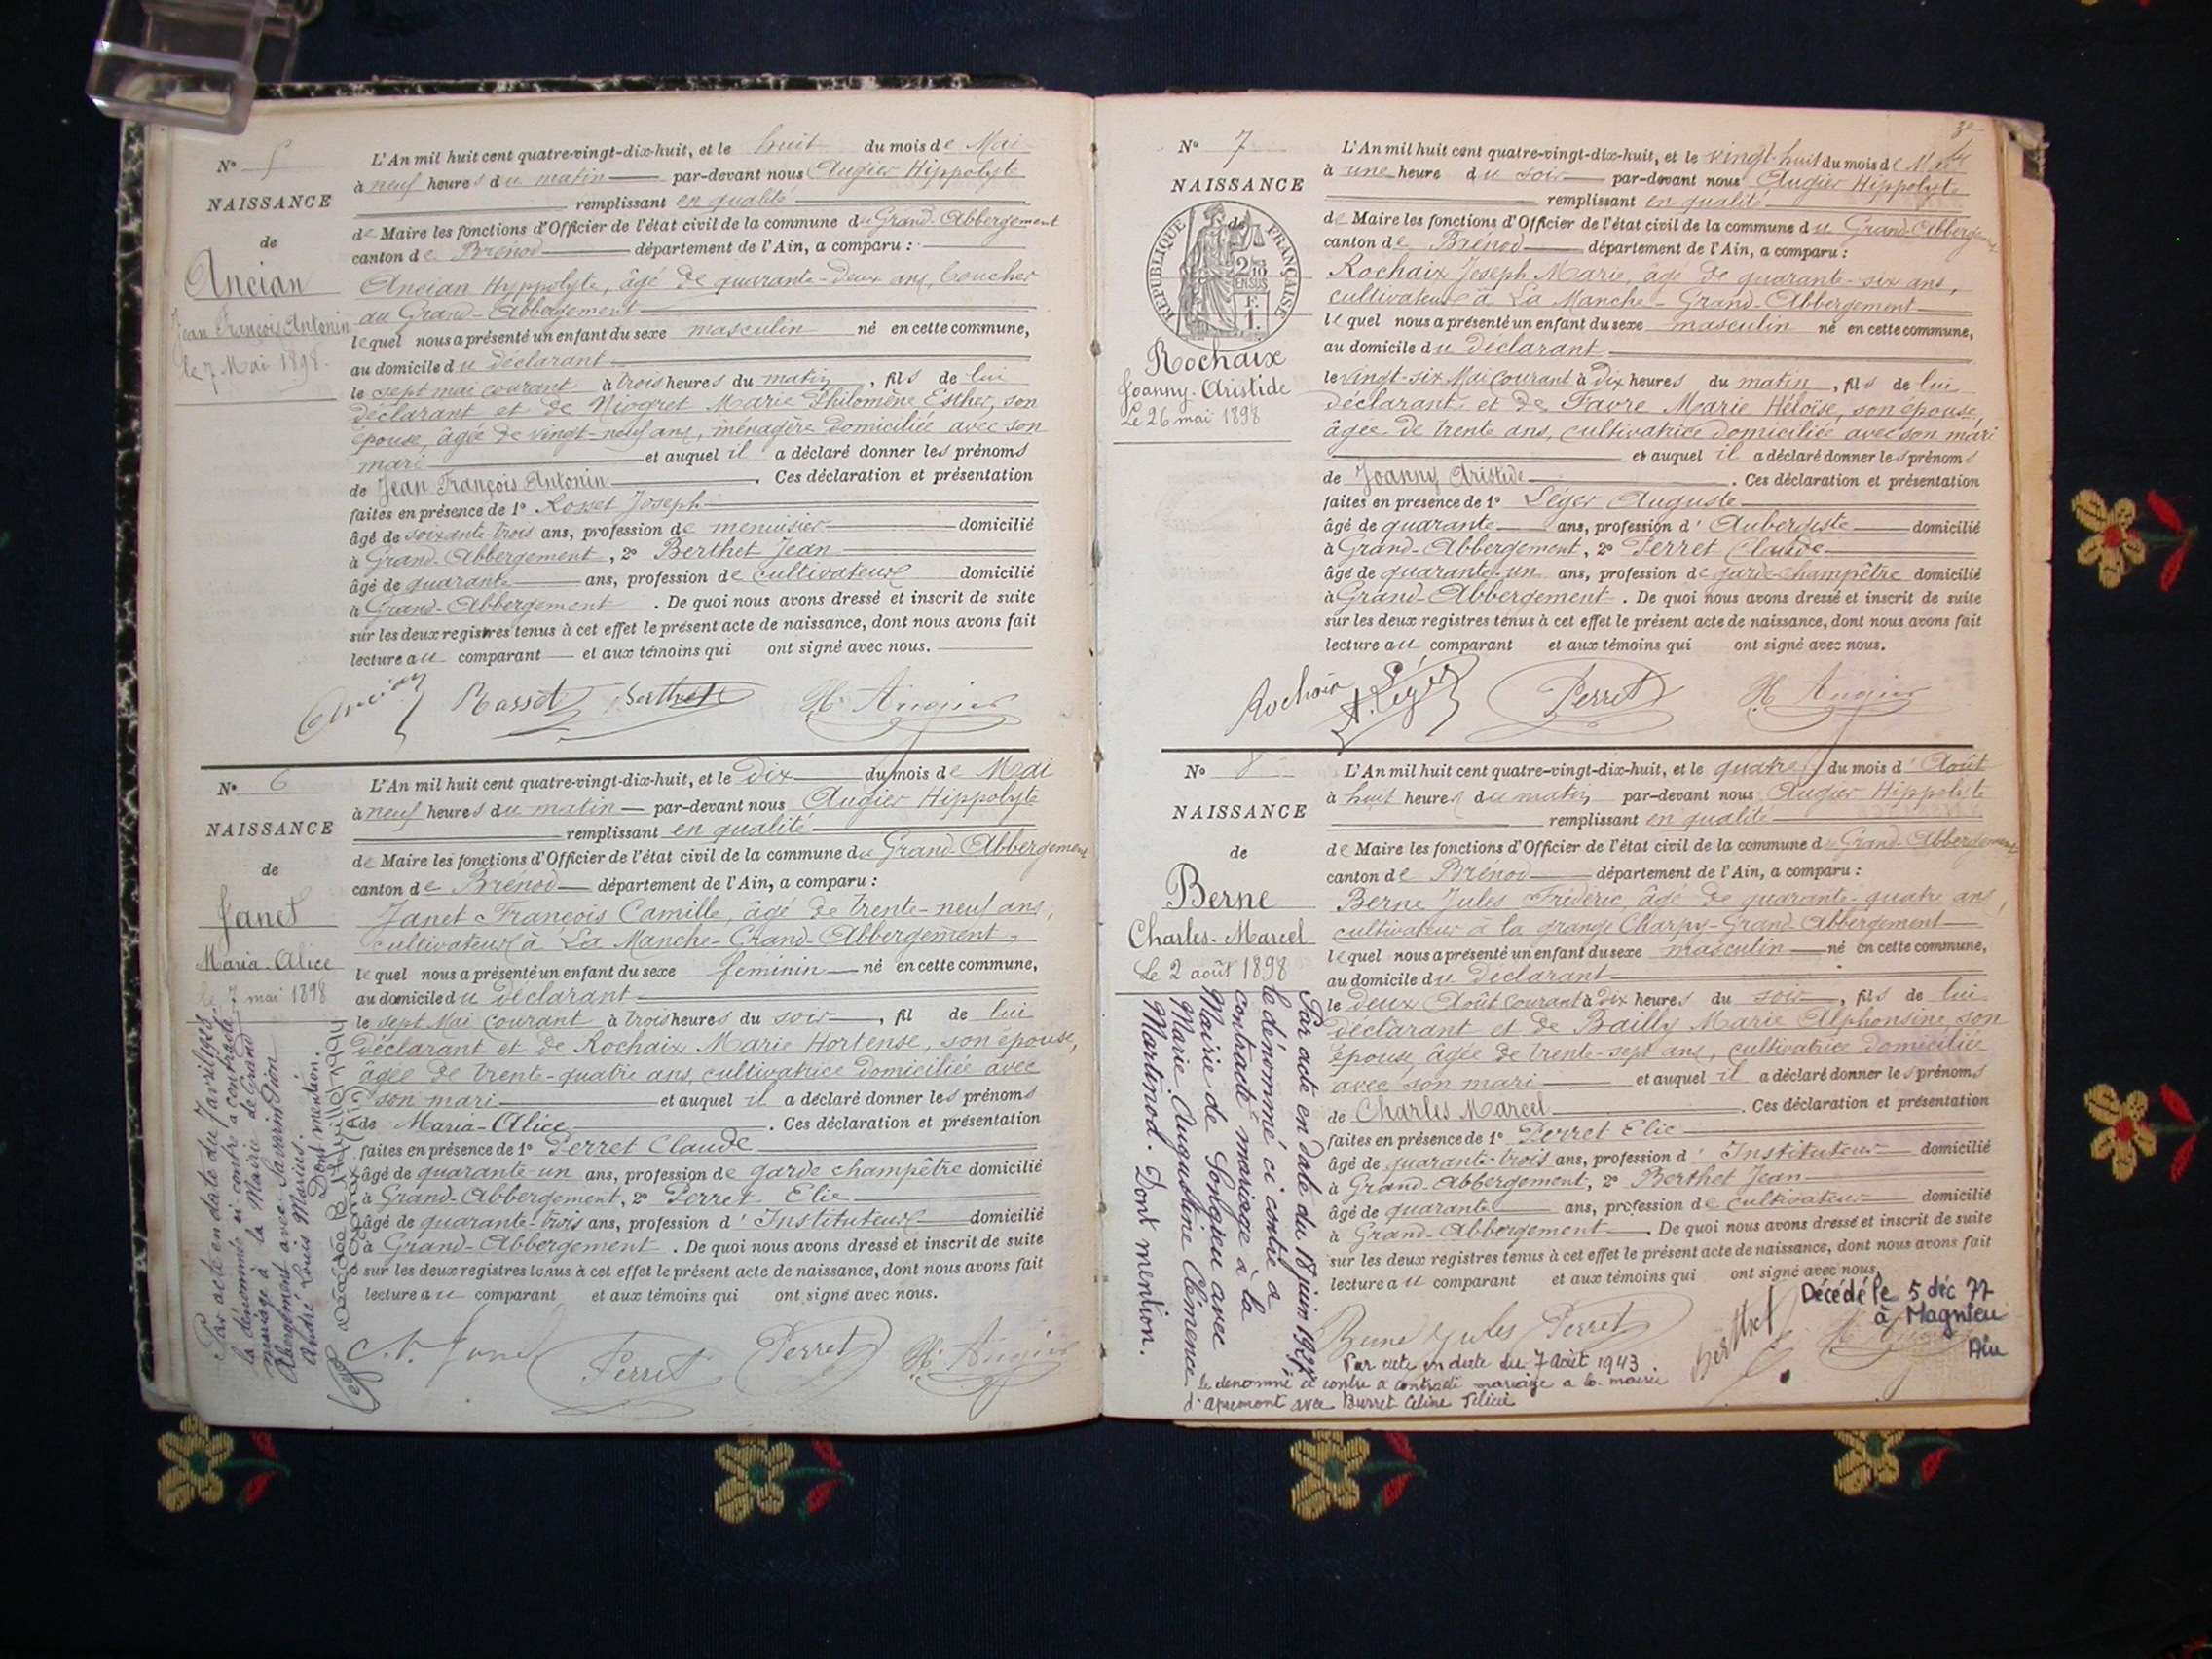 N° 5
NAISSANCE
de
Ancian
Jean François Antonin
le 7 Mai 1898
L'An mil huit cent quatre-vingt-dix-huit, et le huit du mois de Mai
à neuf heures du matin par-devant nous Augier Hippolyte
remplissant en qualité
de Maire les fonctions d'Officier de l'état civil de la commune du Grand-Abbergement
canton de Brénod département de l'Ain, a comparu :
Ancian Hyppolyte, âgé de quarante-deux ans, boucher
au Grand-Abbergement
lequel nous a présenté un enfant du sexe masculin né en cette commune,
au domicile du déclarant
le sept mai courant à trois heures du matin, fils de lui
déclarant et de Niogret Marie Philomène Esther, son
épouse, âgée de vingt-neuf ans, ménagère domiciliée avec son
mari et auquel il a déclaré donner les prénoms
de Jean François Antonin. Ces déclaration et présentation
faites en présence de 1° Rosset Joseph
âgé de soixante-trois ans, profession de menuisier domicilié
à Grand-Abbergement, 2° Berthet Jean
âgé de quarante ans, profession de cultivateur domicilié
à Grand-Abbergement. De quoi nous avons dressé et inscrit de suite
sur les deux registres tenus à cet effet le présent acte de naissance, dont nous avons fait
lecture au comparant et aux témoins qui ont signé avec nous.
Ancian Rosset Berthet H. Augier
N° 6
NAISSANCE
de
Janet
Maria-Alice
le 7 mai 1898
L'An mil huit cent quatre-vingt-dix-huit, et le dix du mois de Mai
à neuf heures du matin par-devant nous Augier Hippolyte
remplissant en qualité
de Maire les fonctions d'Officier de l'état civil de la commune du Grand-Abbergement
canton de Brénod département de l'Ain, a comparu :
Janet François Camille, âgé de trente-neuf ans,
cultivateur à La Manche-Grand-Abbergement,
lequel nous a présenté un enfant du sexe féminin né en cette commune,
au domicile du déclarant
le sept Mai courant à trois heures du soir, fil de lui
déclarant et de Rochaix Marie Hortense, son épouse,
âgée de trente-quatre ans, cultivatrice domiciliée avec
son mari et auquel il a déclaré donner les prénoms
de Maria-Alice. Ces déclaration et présentation
faites en présence de 1° Perret Claude
âgé de quarante-un ans, profession de garde champêtre domicilié
à Grand-Abbergement, 2° Perret Elie
âgé de quarante-trois ans, profession d'Instituteur domicilié
à Grand-Abbergement. De quoi nous avons dressé et inscrit de suite
sur les deux registres tenus à cet effet le présent acte de naissance, dont nous avons fait
lecture au comparant et aux témoins qui ont signé avec nous.
Perret Perret H. Augier
Par acte en date du 7 avril
la dénommée ci-contre a contracté
mariage à la Mairie de Grand
Abergement avec Savarin
André Louis Marius.
Dont mention.
Décédée le
N° 7
NAISSANCE
de
RÉPUBLIQUE FRANÇAISE
2/10
EN SUS
1 F.
Rochaix
Joanny-Aristide
Le 26 mai 1898
L'An mil huit cent quatre-vingt-dix-huit, et le vingt-huit du mois de Mai
à une heure du soir par-devant nous Augier Hippolyte
remplissant en qualité
de Maire les fonctions d'Officier de l'état civil de la commune du Grand-Abbergement
canton de Brénod département de l'Ain, a comparu :
Rochaix Joseph Marie, âgé de quarante-six ans,
cultivateur à La Manche-Grand-Abbergement
lequel nous a présenté un enfant du sexe masculin né en cette commune,
au domicile du déclarant
le vingt-six Mai courant à dix heures du matin, fils de lui
déclarant et de Favre Marie Héloïse, son épouse,
âgée de trente ans, cultivatrice domiciliée avec son mari
et auquel il a déclaré donner les prénoms
de Joanny Aristide. Ces déclaration et présentation
faites en présence de 1° Léger Auguste
âgé de quarante ans, profession d'Aubergiste domicilié
à Grand-Abbergement, 2° Perret Claude
âgé de quarante-un ans, profession de garde-champêtre domicilié
à Grand-Abbergement. De quoi nous avons dressé et inscrit de suite
sur les deux registres tenus à cet effet le présent acte de naissance, dont nous avons fait
lecture au comparant et aux témoins qui ont signé avec nous.
Rochaix A. Léger Perret H. Augier
N° 8
NAISSANCE
de
Berne
Charles-Marcel
Le 2 août 1898
L'An mil huit cent quatre-vingt-dix-huit, et le quatre du mois d'Août
à huit heures du matin par-devant nous Augier Hippolyte
remplissant en qualité
de Maire les fonctions d'Officier de l'état civil de la commune du Grand-Abbergement
canton de Brénod département de l'Ain, a comparu :
Berne Jules Frédéric, âgé de quarante-quatre ans,
cultivateur à la grange Charpy-Grand-Abbergement
lequel nous a présenté un enfant du sexe masculin né en cette commune,
au domicile du déclarant
le deux Août courant à dix heures du soir, fils de lui
déclarant et de Bailly Marie Alphonsine son
épouse, âgée de trente-sept ans, cultivatrice domiciliée
avec son mari et auquel il a déclaré donner les prénoms
de Charles Marcel. Ces déclaration et présentation
faites en présence de 1° Perret Elie
âgé de quarante-trois ans, profession d'Instituteur domicilié
à Grand-Abbergement, 2° Berthet Jean
âgé de quarante ans, profession de cultivateur domicilié
à Grand-Abbergement. De quoi nous avons dressé et inscrit de suite
sur les deux registres tenus à cet effet le présent acte de naissance, dont nous avons fait
lecture au comparant et aux témoins qui ont signé avec nous.
Berne Jules Perret Berthet H. Augier
Décédé le 5 déc 77
à Magnieu
Ain
Par acte en date du 18 juin 1927,
le dénommé ci contre a
contracté mariage à la
Mairie de Songieu avec
Marie Augustine Clémence
Martinod. Dont mention.
Par acte en date du 7 Août 1943.
le dénommé ci contre a contracté mariage a la mairie
d'apremont avec Burret Céline Félicie